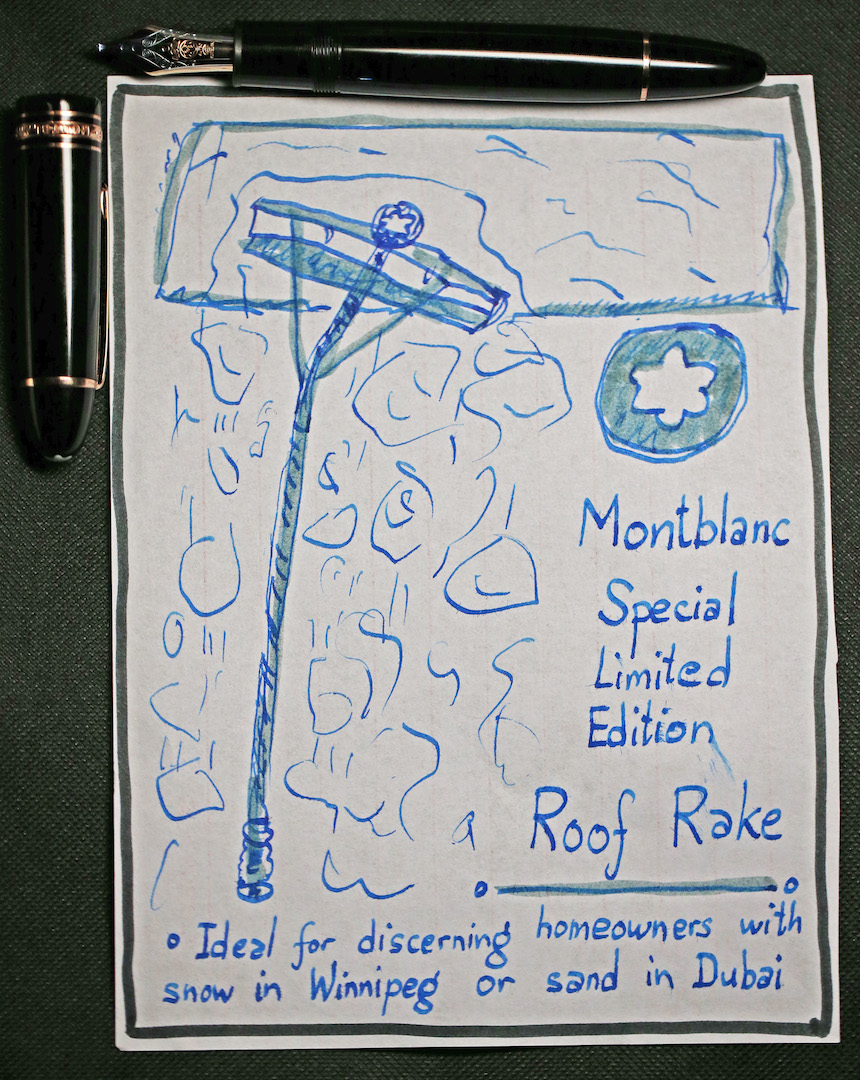 Montblanc
Special
Limited
Edition
Roof Rake
• Ideal for discerning homeowners with
snow in Winnipeg or sand in Dubai